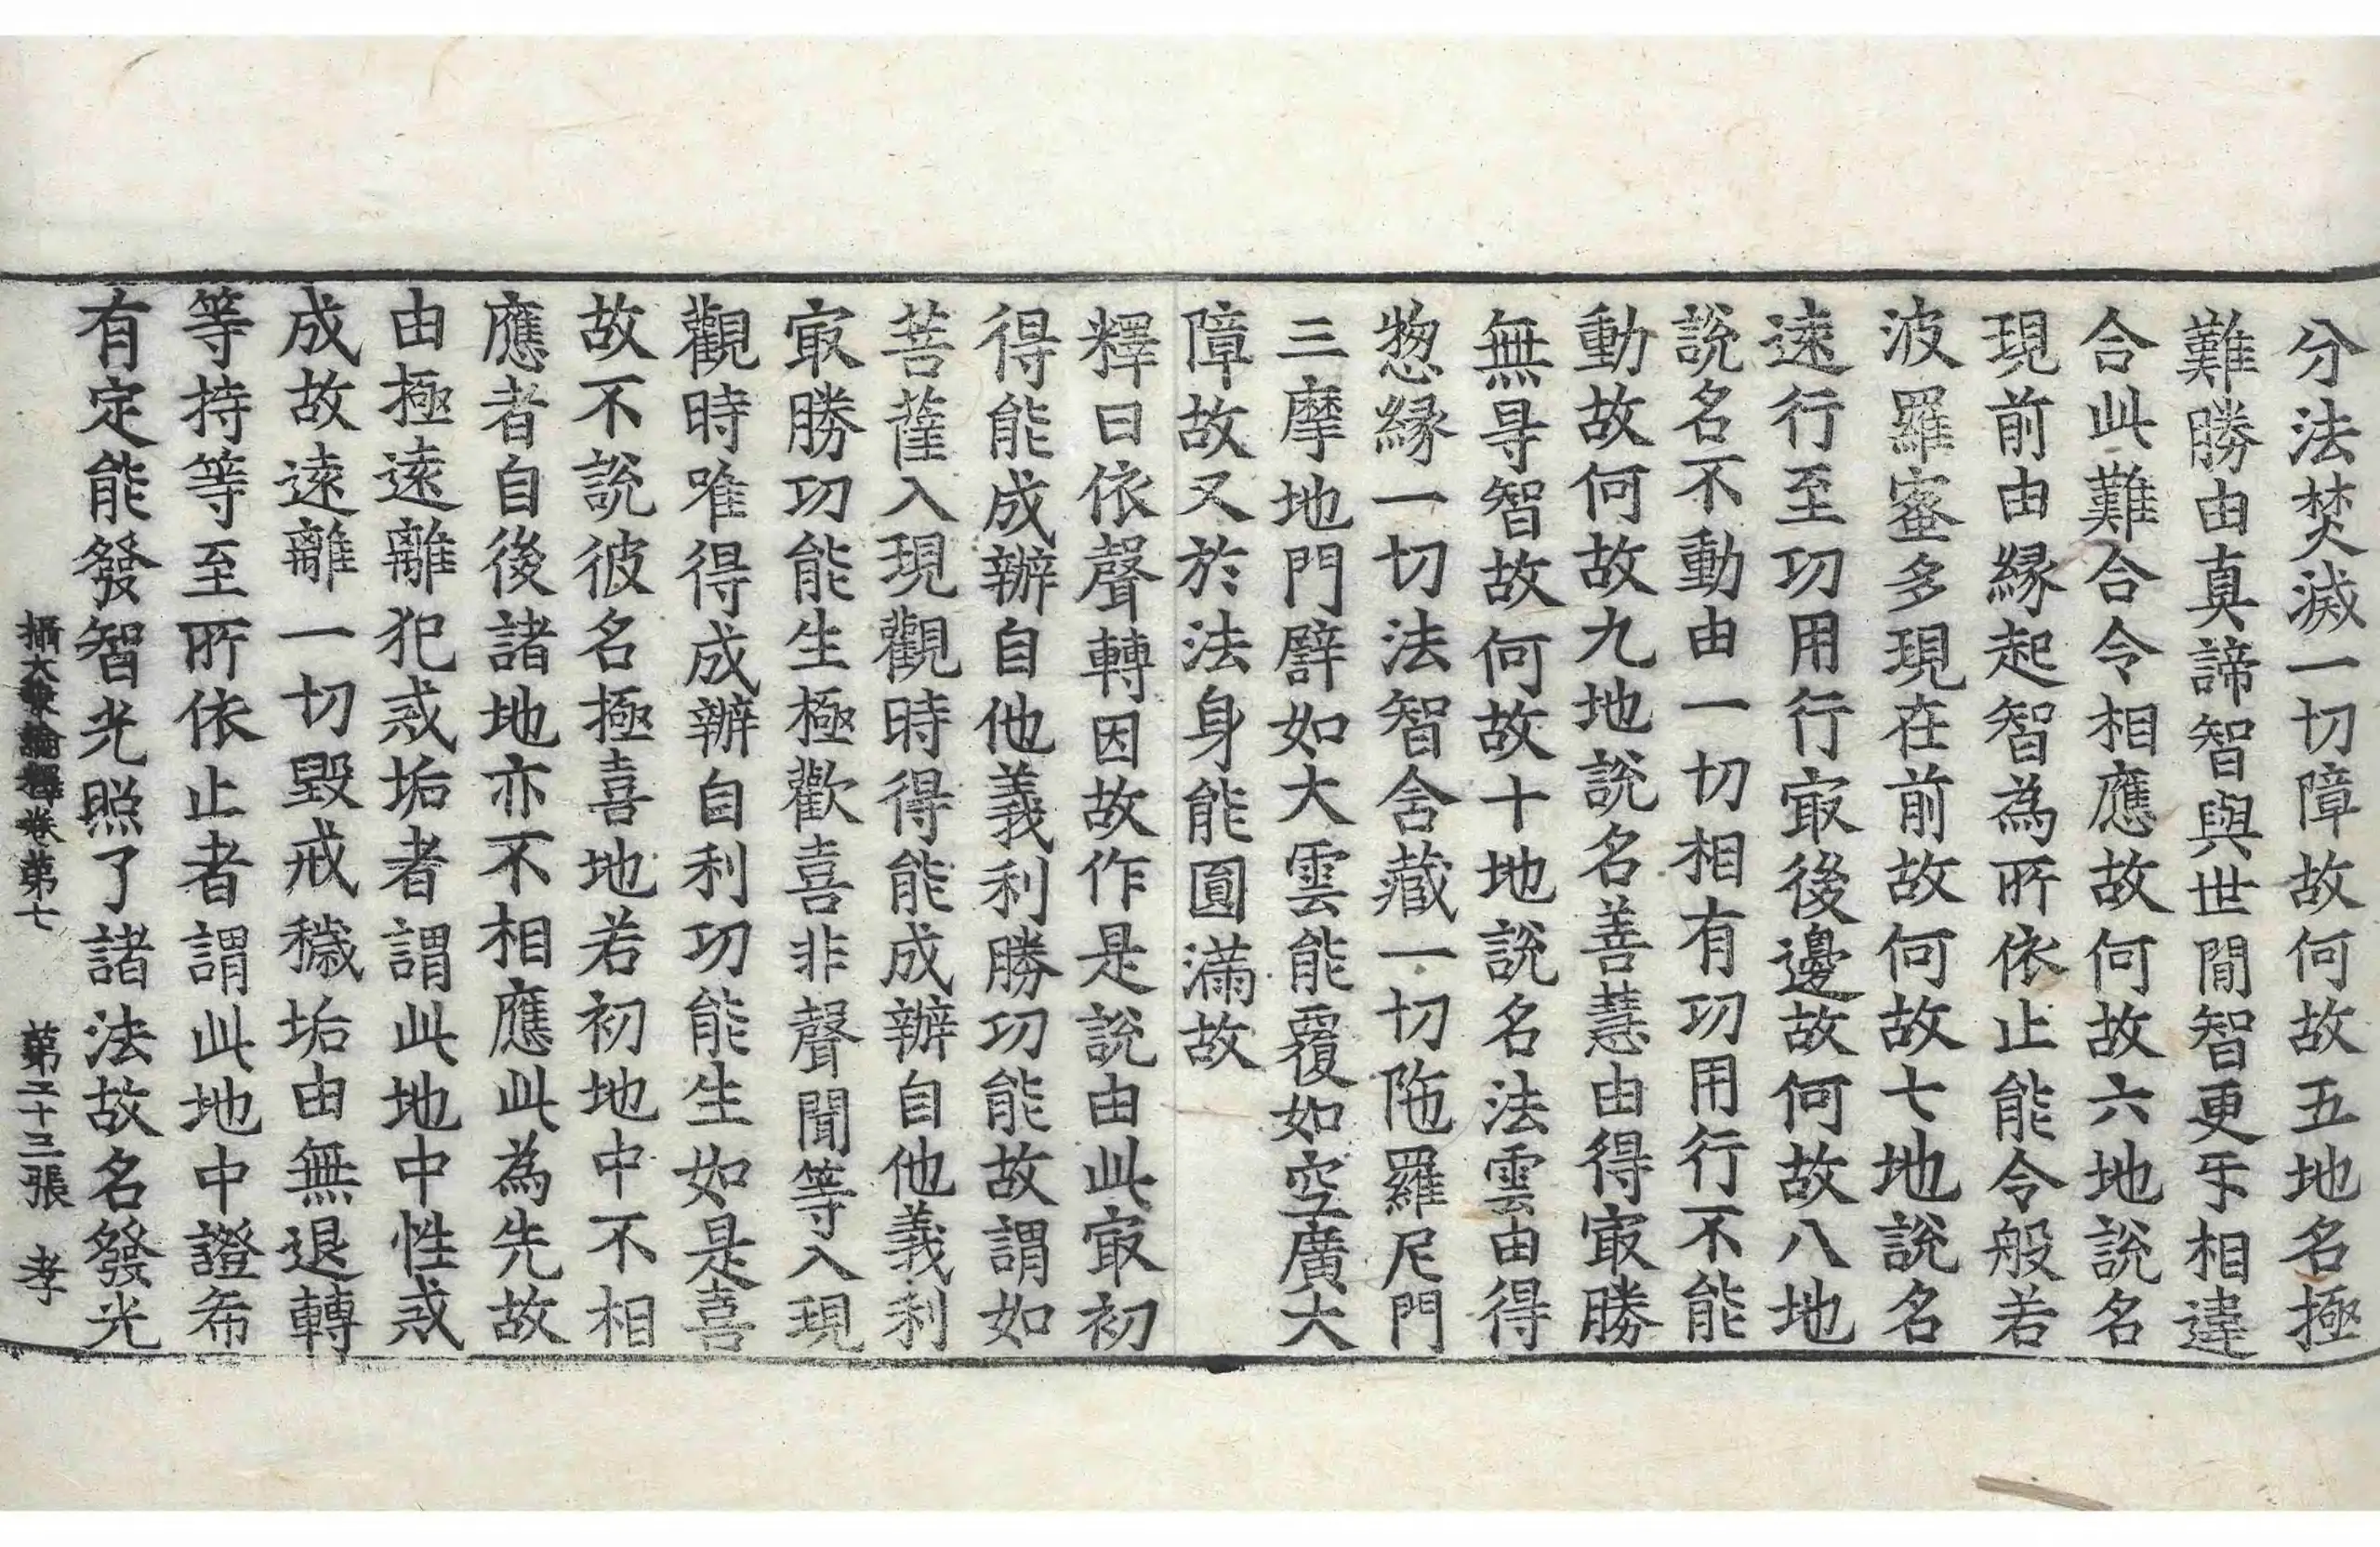 分法焚滅一切障故何故五地名極
難勝由真諦智與世間智更㸦相違
合此難合令相應故何故六地說名
現前由緣起智為所依止能令般若
波羅蜜多現在前故何故七地說名
遠行至功用行㝡後邊故何故八地
說名不動由一切相有功用行不能
動故何故九地說名善慧由得㝡勝
無㝵智故何故十地說名法雲由得
惣緣一切法智含藏一切陁羅尼門
三摩地門譬如大雲能覆如空廣大
障故又於法身能圓滿故
釋曰依聲轉因故作是說由此㝡初
得能成辦自他義利勝功能故謂如
菩薩入現觀時得能成辦自他義利
㝡勝功能生極歡喜非聲聞等入現
觀時唯得成辦自利功能生如是喜
故不說彼名極喜地若初地中不相
應者自後諸地亦不相應此為先故
由極遠離犯戒垢者謂此地中性戒
成故遠離一切毀戒穢垢由無退轉
等持等至所依止者謂此地中證希
有定能發智光照了諸法故名發光
攝大乘論釋卷第七 第二十三張 孝